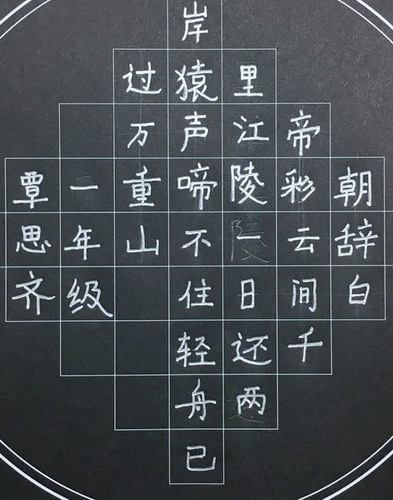 朝辞白
帝彩云间千
里江陵一日还两
岸猿声啼不住轻舟已
过万重山
一年级
覃思齐